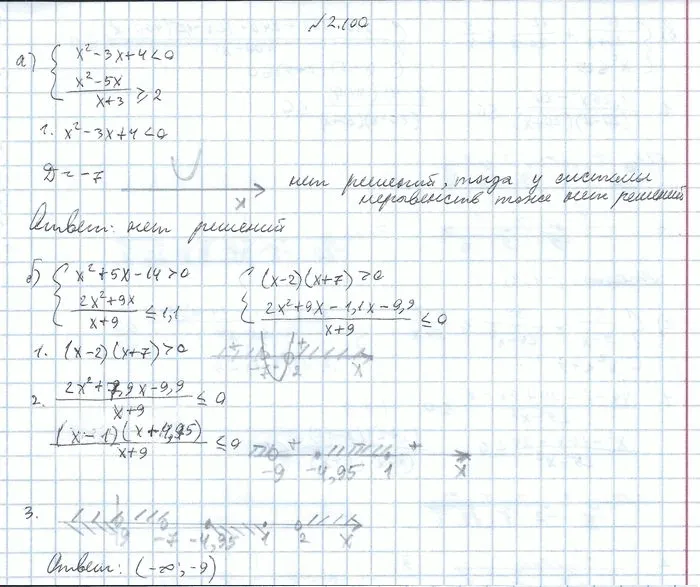 №2.100
а) { x² - 3x + 4 < 0
(x² - 5x)/(x+3) ≥ 2
1. x² - 3x + 4 < 0
Д = -7
x
нет решений, тогда у системы
неравенств тоже нет решений
Ответ: нет решений
б) { x² + 5x - 14 > 0
(2x² + 9x)/(x+9) ≤ 1,1
{ (x-2)(x+7) > 0
(2x² + 9x - 1,1x - 9,9)/(x+9) ≤ 0
1. (x-2)(x+7) > 0
+ - + -7 2 x
2. (2x² + 7,9x - 9,9)/(x+9) ≤ 0
(x-1)(x+4,95)/(x+9) ≤ 0
+ + -9 -4,95 1 x
3. -9 -7 -4,95 1 2 x
Ответ: (-∞; -9)